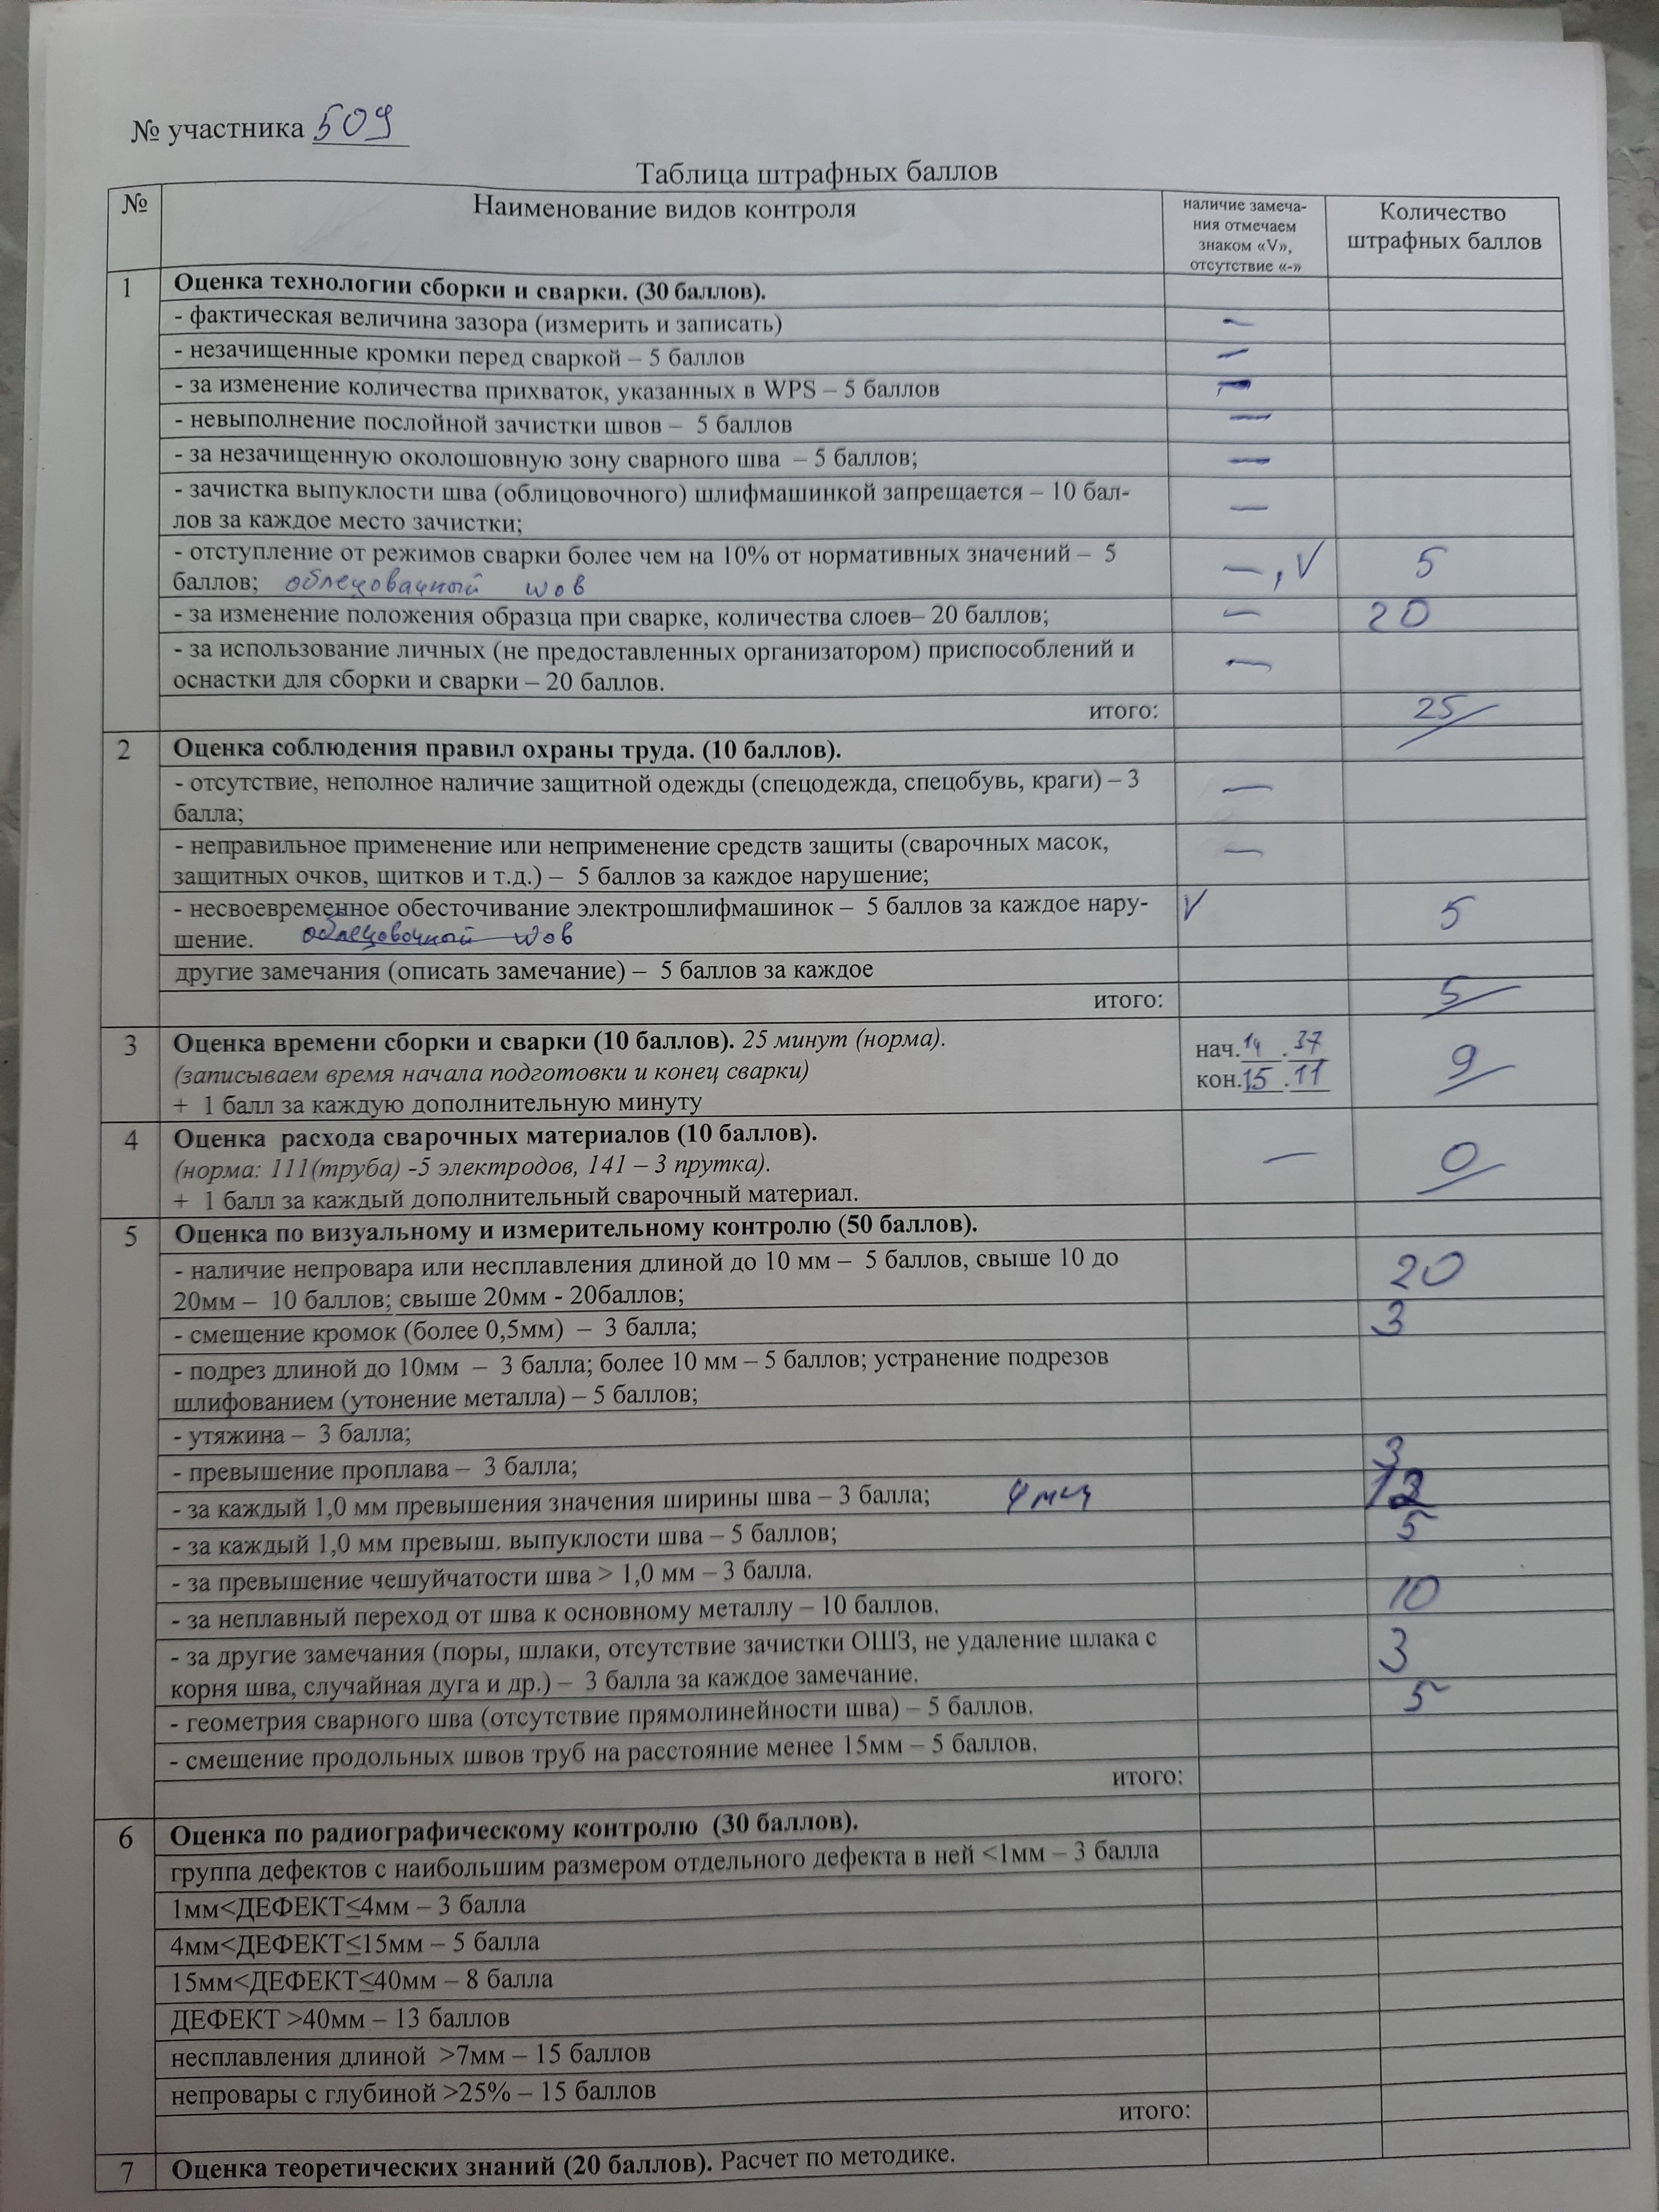 № участника 509
Таблица штрафных баллов
№ Наименование видов контроля наличие замеча-
ния отмечаем
знаком «V»,
отсутствие «-» Количество
штрафных баллов
1 Оценка технологии сборки и сварки. (30 баллов).
- фактическая величина зазора (измерить и записать) –
- незачищенные кромки перед сваркой – 5 баллов –
- за изменение количества прихваток, указанных в WPS – 5 баллов –
- невыполнение послойной зачистки швов – 5 баллов –
- за незачищенную околошовную зону сварного шва – 5 баллов; –
- зачистка выпуклости шва (облицовочного) шлифмашинкой запрещается – 10 бал-
лов за каждое место зачистки; –
- отступление от режимов сварки более чем на 10% от нормативных значений – 5
баллов; облецовачный шов –, V 5
- за изменение положения образца при сварке, количества слоев– 20 баллов; – 20
- за использование личных (не предоставленных организатором) приспособлений и
оснастки для сборки и сварки – 20 баллов. –
итого: 25
2 Оценка соблюдения правил охраны труда. (10 баллов).
- отсутствие, неполное наличие защитной одежды (спецодежда, спецобувь, краги) – 3
балла; –
- неправильное применение или неприменение средств защиты (сварочных масок,
защитных очков, щитков и т.д.) – 5 баллов за каждое нарушение; –
- несвоевременное обесточивание электрошлифмашинок – 5 баллов за каждое нару-
шение. облецовочный шов V 5
другие замечания (описать замечание) – 5 баллов за каждое
итого: 5
3 Оценка времени сборки и сварки (10 баллов). 25 минут (норма).
(записываем время начала подготовки и конец сварки)
+ 1 балл за каждую дополнительную минуту
нач.14.37
кон.15.11
9
4 Оценка расхода сварочных материалов (10 баллов).
(норма: 111(труба) -5 электродов, 141 – 3 прутка).
+ 1 балл за каждый дополнительный сварочный материал.
– 0
5 Оценка по визуальному и измерительному контролю (50 баллов).
- наличие непровара или несплавления длиной до 10 мм – 5 баллов, свыше 10 до
20мм – 10 баллов; свыше 20мм - 20баллов; 20
- смещение кромок (более 0,5мм) – 3 балла; 3
- подрез длиной до 10мм – 3 балла; более 10 мм – 5 баллов; устранение подрезов
шлифованием (утонение металла) – 5 баллов;
- утяжина – 3 балла;
- превышение проплава – 3 балла; 3
- за каждый 1,0 мм превышения значения ширины шва – 3 балла; 4 мм 12
- за каждый 1,0 мм превыш. выпуклости шва – 5 баллов; 5
- за превышение чешуйчатости шва > 1,0 мм – 3 балла.
- за неплавный переход от шва к основному металлу – 10 баллов. 10
- за другие замечания (поры, шлаки, отсутствие зачистки ОШЗ, не удаление шлака с
корня шва, случайная дуга и др.) – 3 балла за каждое замечание. 3
- геометрия сварного шва (отсутствие прямолинейности шва) – 5 баллов. 5
- смещение продольных швов труб на расстояние менее 15мм – 5 баллов.
итого:
6 Оценка по радиографическому контролю (30 баллов).
группа дефектов с наибольшим размером отдельного дефекта в ней <1мм – 3 балла
1мм<ДЕФЕКТ≤4мм – 3 балла
4мм<ДЕФЕКТ≤15мм – 5 балла
15мм<ДЕФЕКТ≤40мм – 8 балла
ДЕФЕКТ >40мм – 13 баллов
несплавления длиной >7мм – 15 баллов
непровары с глубиной >25% – 15 баллов
итого:
7 Оценка теоретических знаний (20 баллов). Расчет по методике.